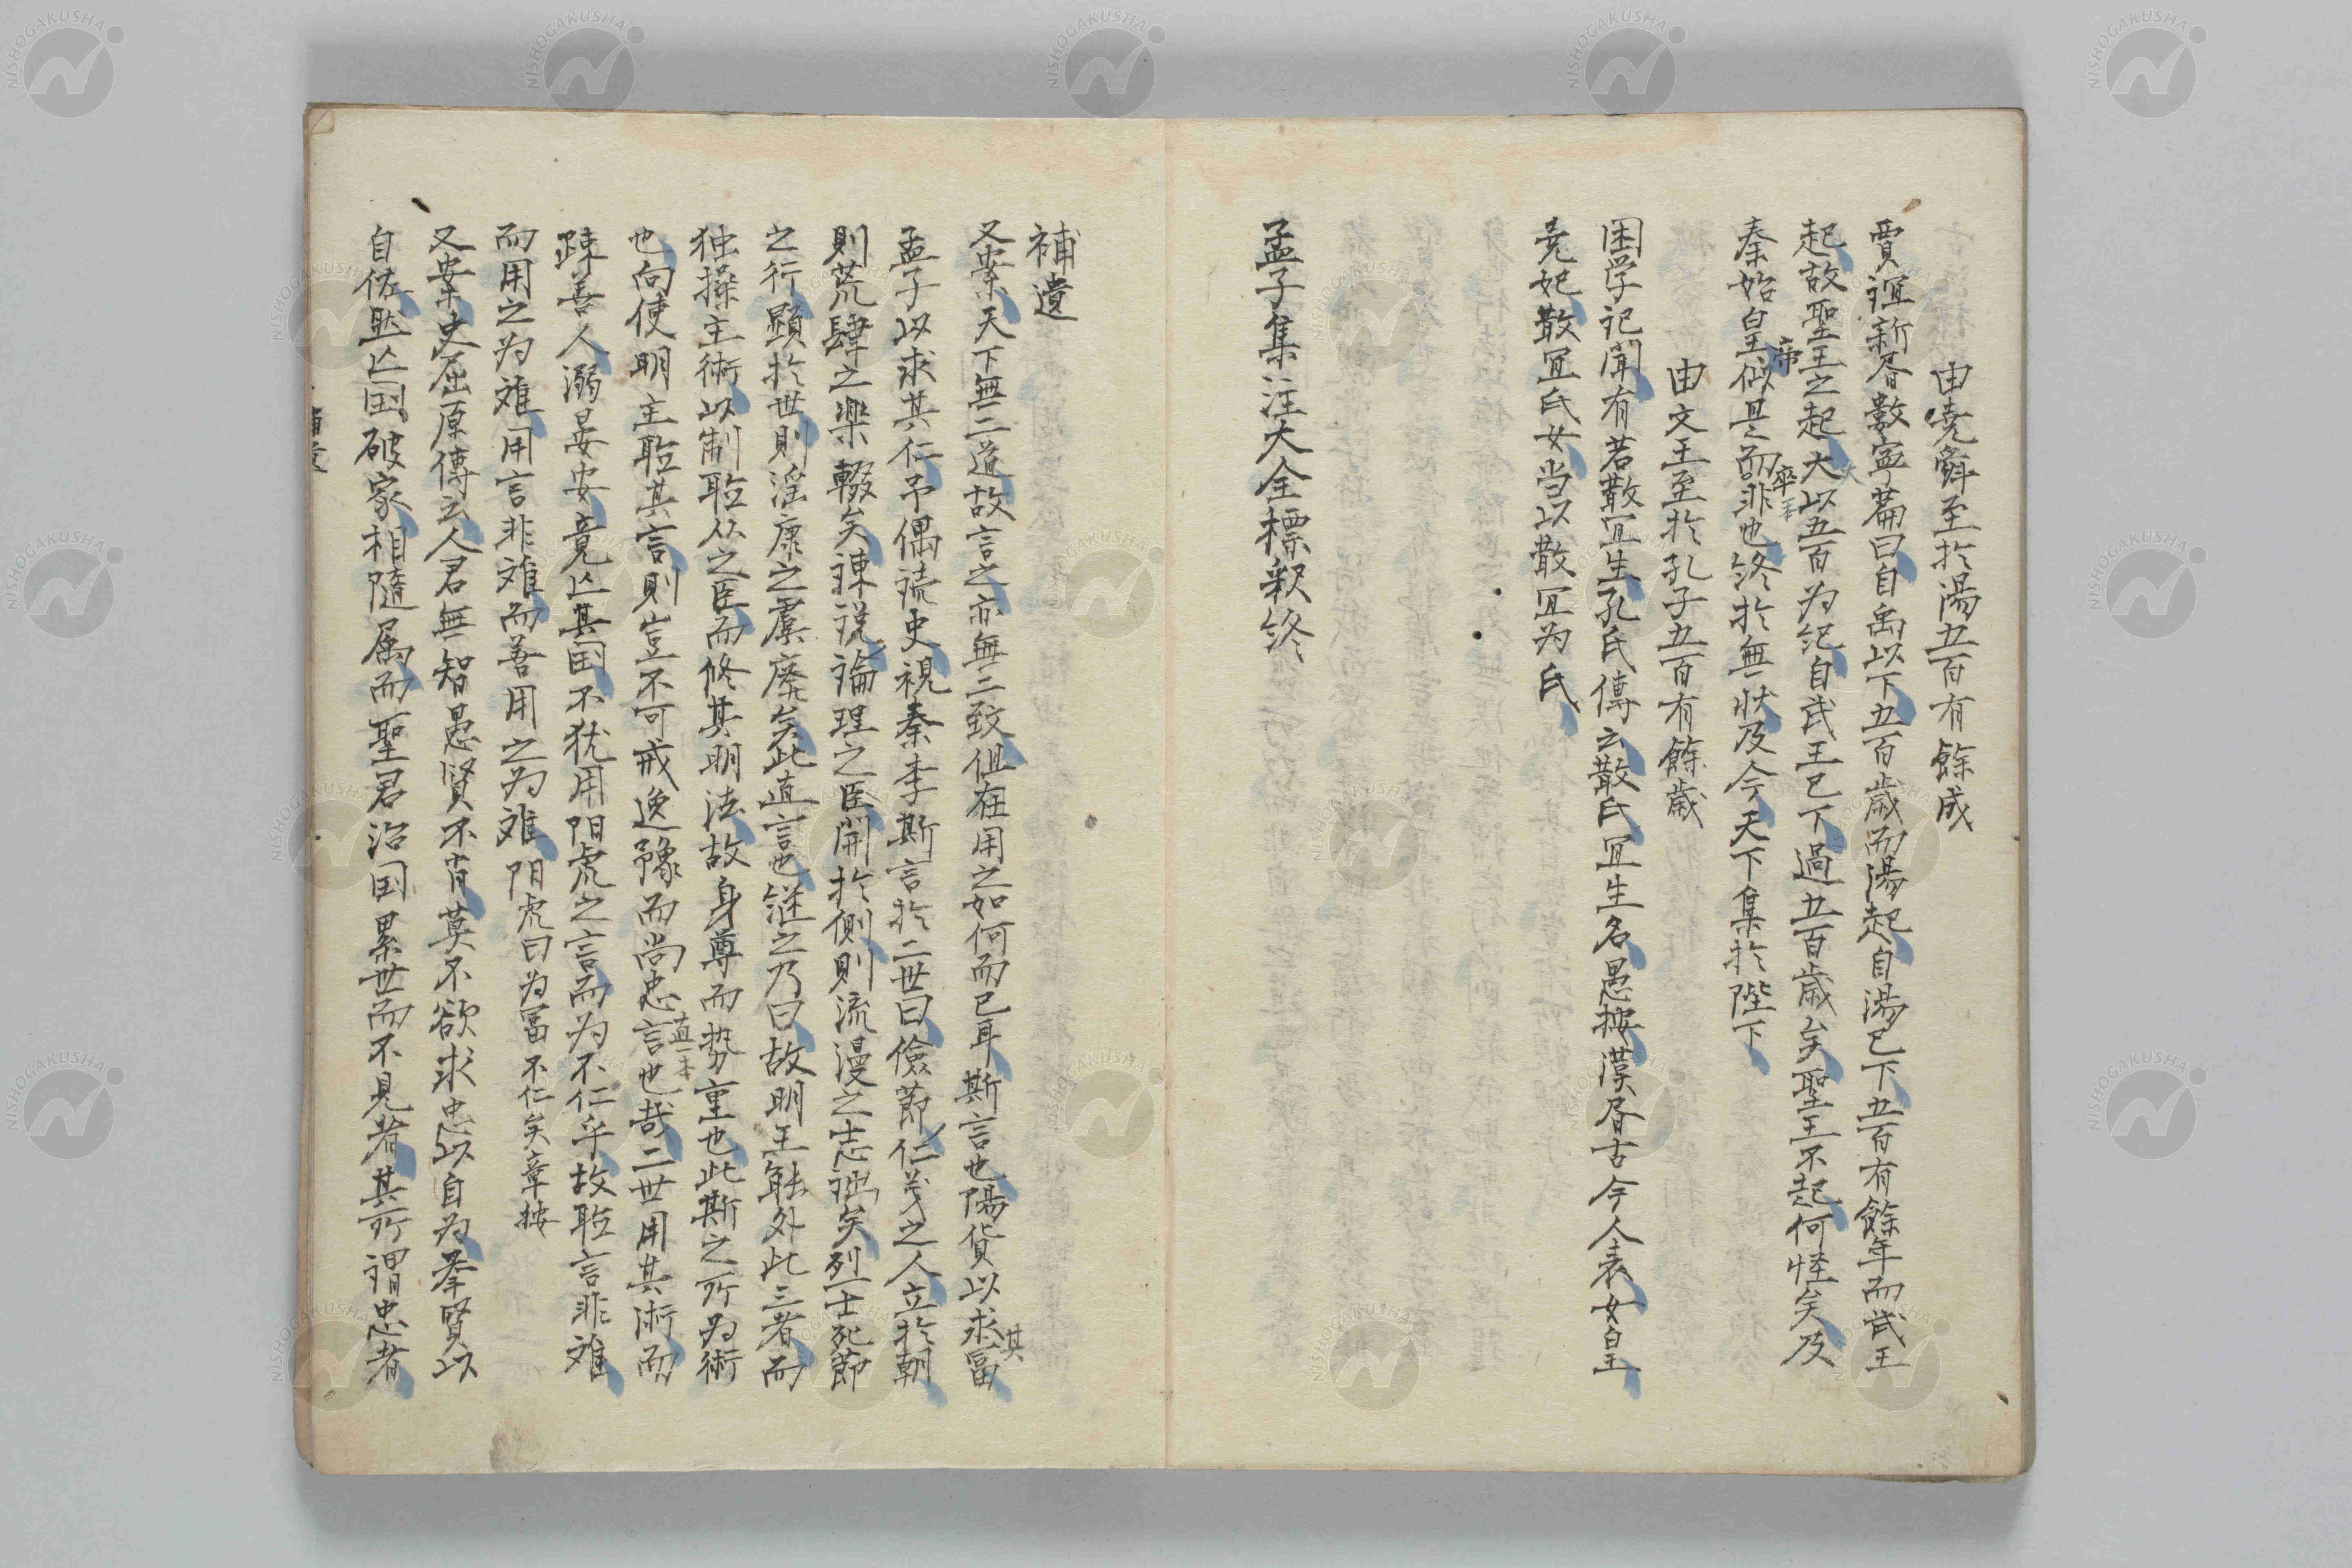 由堯舜至於湯五百有餘成
賈誼新昏數寧篇曰自禹以下五百歳而湯起自湯已下五百有餘年而武王
起故聖王之起大以五百为紀自武王已下過五百歳矣聖王不起何怪矣及
秦始皇似是而非也終於無状及今天下集於陛下
由文王至於孔子五百有餘歳
困学记聞有若散冝生孔氏傳云散氏冝生名愚按漢昏古今人表女皇
尭妃散冝氏女当以散冝为氏
孟子集注大全標釈終
補遺
又案天下無二道故言之亦無二致伹在用之如何而已耳斯言也陽貨以求其冨
孟子以求其仁予偶読史視秦李斯言於二世曰儉莭仁义之人立於朝
則荒肆之楽輟矣諌説論理之臣開於側則流漫之志詘矣烈士死莭
之行顕於世則淫康之虞廃矣此直言也継之乃曰故明王能外此三者而
独操主術以制聴从之臣而修其明法故身尊而势重也此斯之所为術
也向使明主聴其言則豈不可戒逸豫而尚忠言也哉二世用其術而
踈善人溺晏安竟亾其国不犹用阳虎之言而为不仁乎故聴言非难
而用之为难用言非难而善用之为难 阳虎曰为冨不仁矣章按
又案史屈原傳云人君無智愚賢不肖莫不欲求忠以自为挙賢以
自佐然亾国破家相隨属而聖君治国累世而不見者其所謂忠者